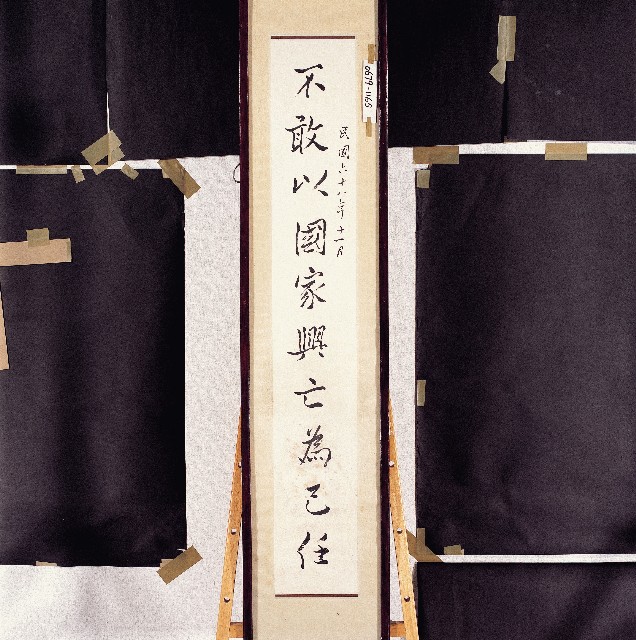 0679-1165
民國六十八年十一月
不敢以國家興亡為己任